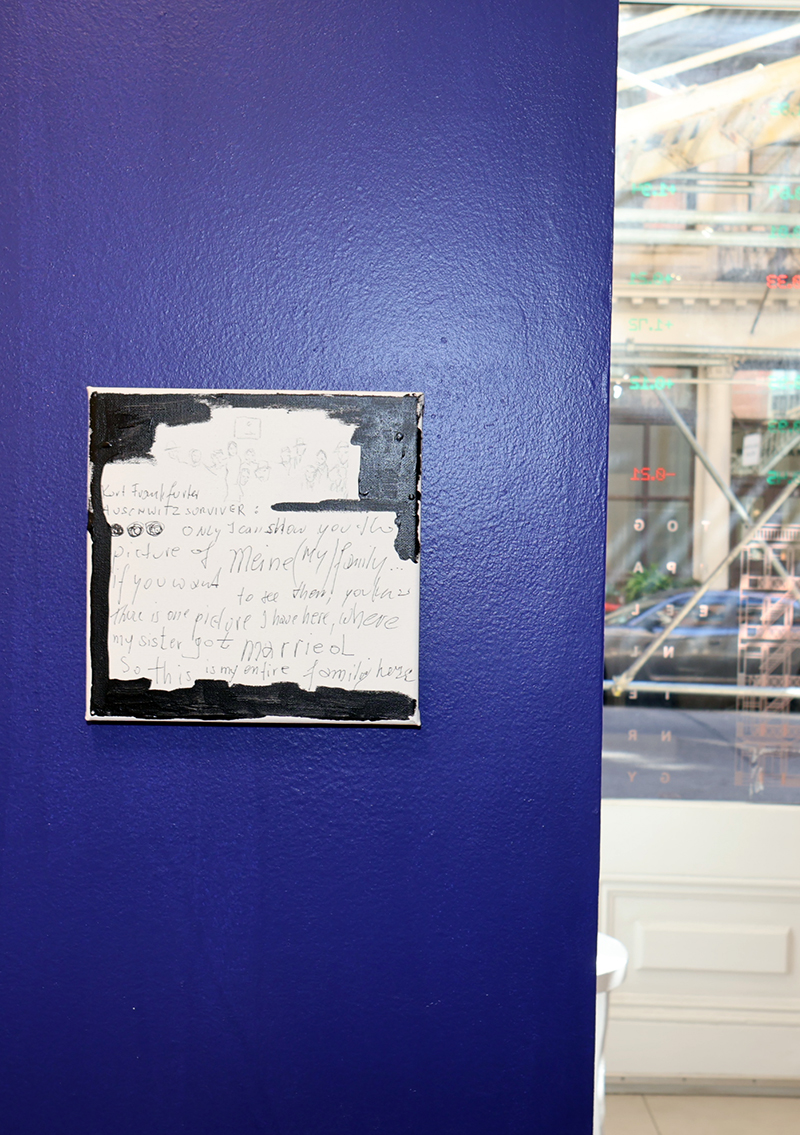 Kurt Frankfurter
AUSCHWITZ SURVIVER :
ONLY I can show you the
picture of Meine (My) family...
if you want to see them, you
there is one picture I have here, where
my sister got married
So this is my entire family here
+1.72
-0.21